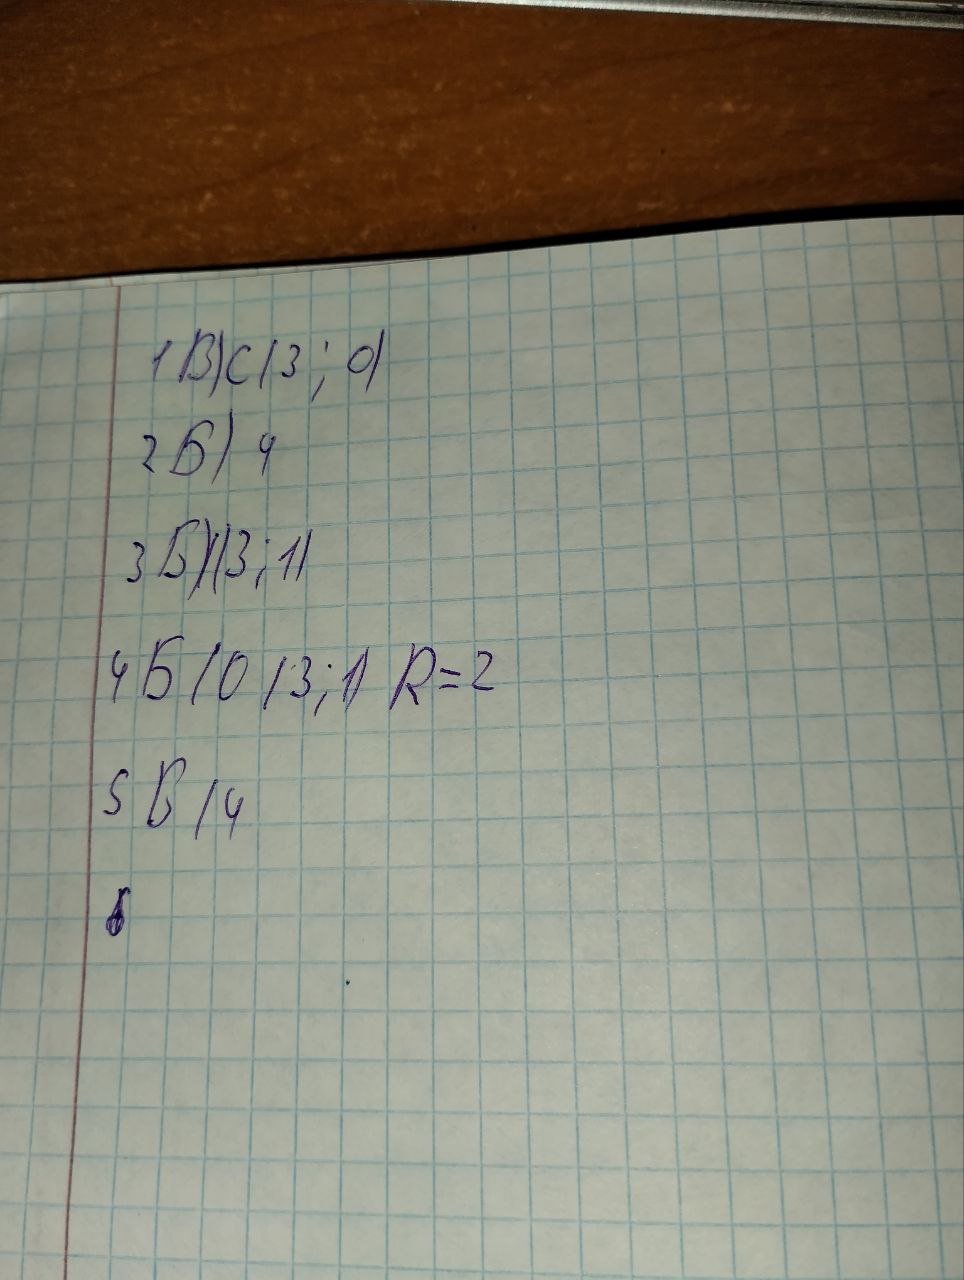 1 В) С(3; 0)
2 Б) 4
3 Б) (3; 1)
4 Б) О (3; 1) R=2
5 Б) 4